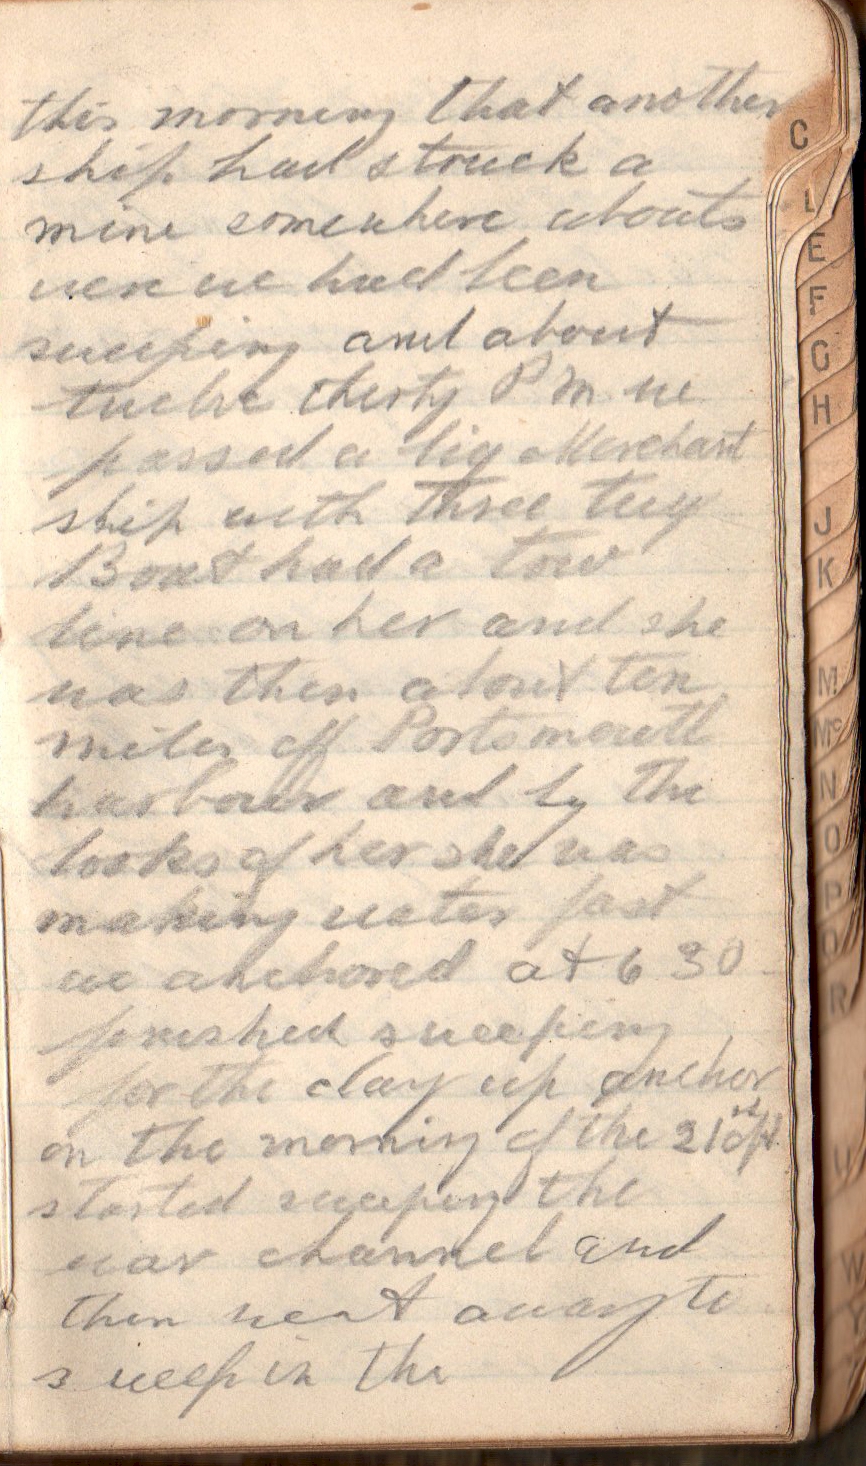 this morning that another
ship had struck a
mine somewhere abouts
were we had been
sweeping and about
twelve thirty P m we
passed a big Merchant
ship with three tug
Boat had a tow
line on her and she
was then about ten
miles off Portsmouth
harbour and by the
looks of her she was
making water fast
we anchored at 6 30
finished sweeping
for the day up anchor
on the morning of the 21st
started sweeping the
war channel and
then went away to
sweep in the
C
L
E
F
G
H
J
K
M
Mc
N
O
P
Q
R
U
W
Y